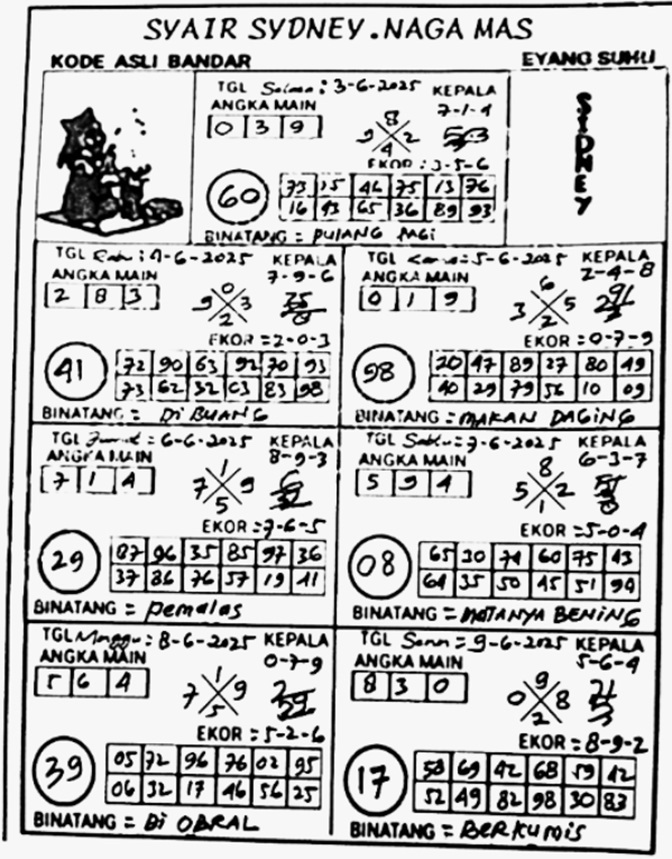 SYAIR SYDNEY.NAGA MAS
KODE ASLI BANDAR
EYANG SUHU
SIDNEY
TGL Selasa : 3-6-2025 KEPALA
ANGKA MAIN 7-1-4
0 3 9
8
9 2
4
EKOR : 3-5-6
60
73 15 46 75 13 76
16 43 65 36 89 93
BINATANG = PULANG PAGI
TGL Rabu : 4-6-2025 KEPALA
ANGKA MAIN 7-9-6
2 8 3
0
9 3
2
EKOR = 2-0-3
41
72 90 63 92 70 93
73 62 32 03 83 98
BINATANG = Di BUANG
TGL Kamis : 5-6-2025 KEPALA
ANGKA MAIN 2-4-8
0 1 9
6
3 5
2
EKOR = 0-7-9
98
20 47 89 27 80 49
40 29 79 56 10 09
BINATANG = MAKAN DAGING
TGL Jumat = 6-6-2025 KEPALA
ANGKA MAIN 8-9-3
7 1 4
1
7 9
5
EKOR = 7-6-5
29
87 96 35 85 97 36
37 86 76 57 19 41
BINATANG = pemalas
TGL Sabtu = 7-6-2025 KEPALA
ANGKA MAIN 6-3-7
5 9 4
8
5 2
1
EKOR = 5-0-4
08
65 30 74 60 75 43
64 35 50 45 51 94
BINATANG = MATANYA BENING
TGL Minggu : 8-6-2025 KEPALA
ANGKA MAIN 0-7-9
5 6 4
1
7 9
5
EKOR = 5-2-6
39
05 72 96 76 02 95
06 32 17 46 56 25
BINATANG = Di OBRAL
TGL Senin = 9-6-2025 KEPALA
ANGKA MAIN 5-6-4
8 3 0
9
0 8
2
EKOR = 8-9-2
17
58 69 42 68 59 42
52 49 82 98 30 83
BINATANG = BERKUMIS